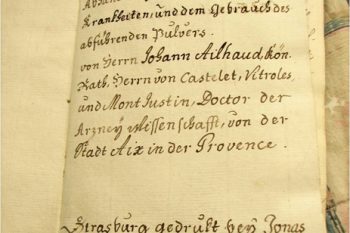 Krankheiten, und dem Gebrauch des
abführenden Pulvers.
von Herrn Johann Ailhaud, Kön.
Rath, Herrn von Castelet, Vitroles,
und Mont Justin, Doctor der
Arzney Wissenschafft, von der
Stadt Aix in der Provence.
Strasburg gedrukt bey Jonas